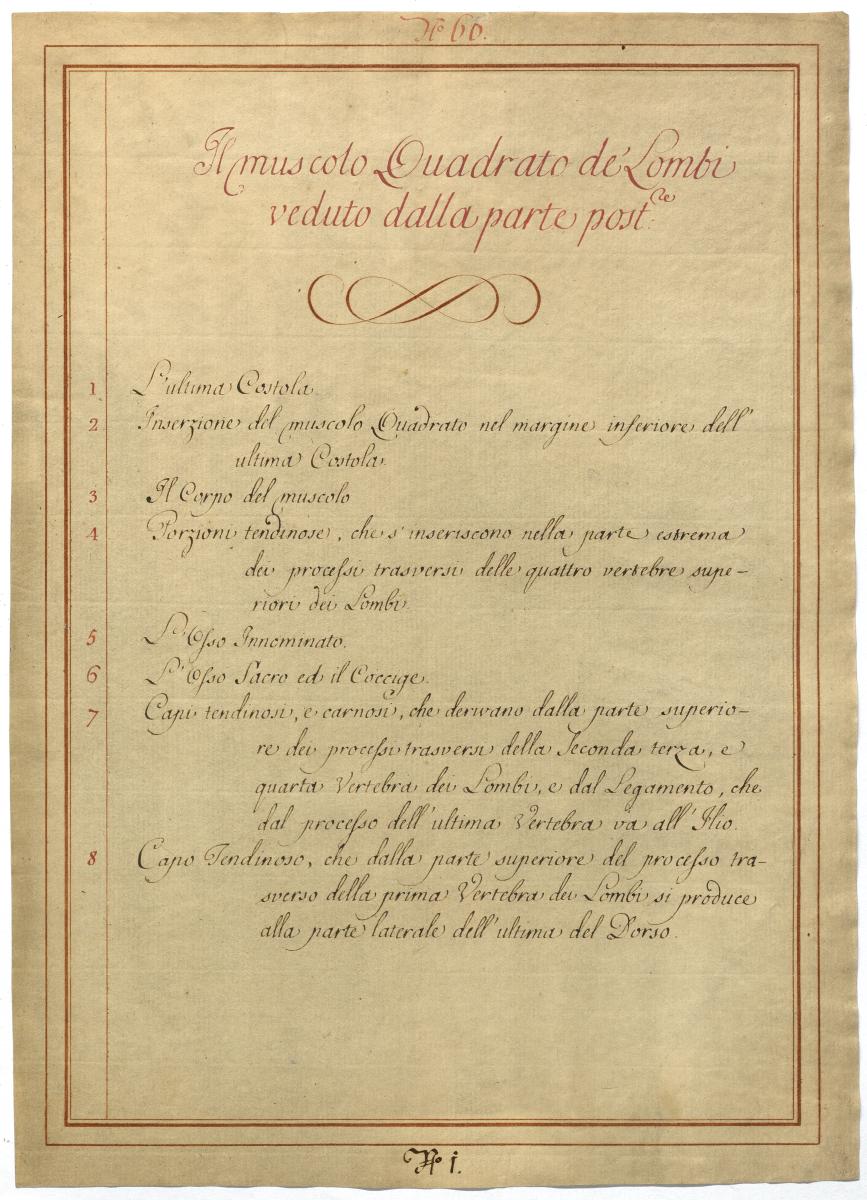 N.o 60.
Il muscolo Quadrato de' Lombi
veduto dalla parte post.re
1 L'ultima Costola
2 Inserzione del muscolo Quadrato nel margine inferiore dell'
ultima Costola.
3 Il Corpo del muscolo
4 Porzioni tendinose, che s'inseriscono nella parte estrema
dei processi trasversi delle quattro vertebre supe-
riori dei Lombi.
5 L'Osso Innominato.
6 L'Osso Sacro ed il Coccige.
7 Capi tendinosi, e carnosi, che derivano dalla parte superio-
re dei processi trasversi della Seconda terza, e
quarta Vertebra dei Lombi, e dal Legamento, che
dal processo dell'ultima Vertebra va all'Ilio.
8 Capo Tendinoso, che dalla parte superiore del processo tra-
sverso della prima Vertebra dei Lombi si produce
alla parte laterale dell'ultima del Dorso.
N.o 1.